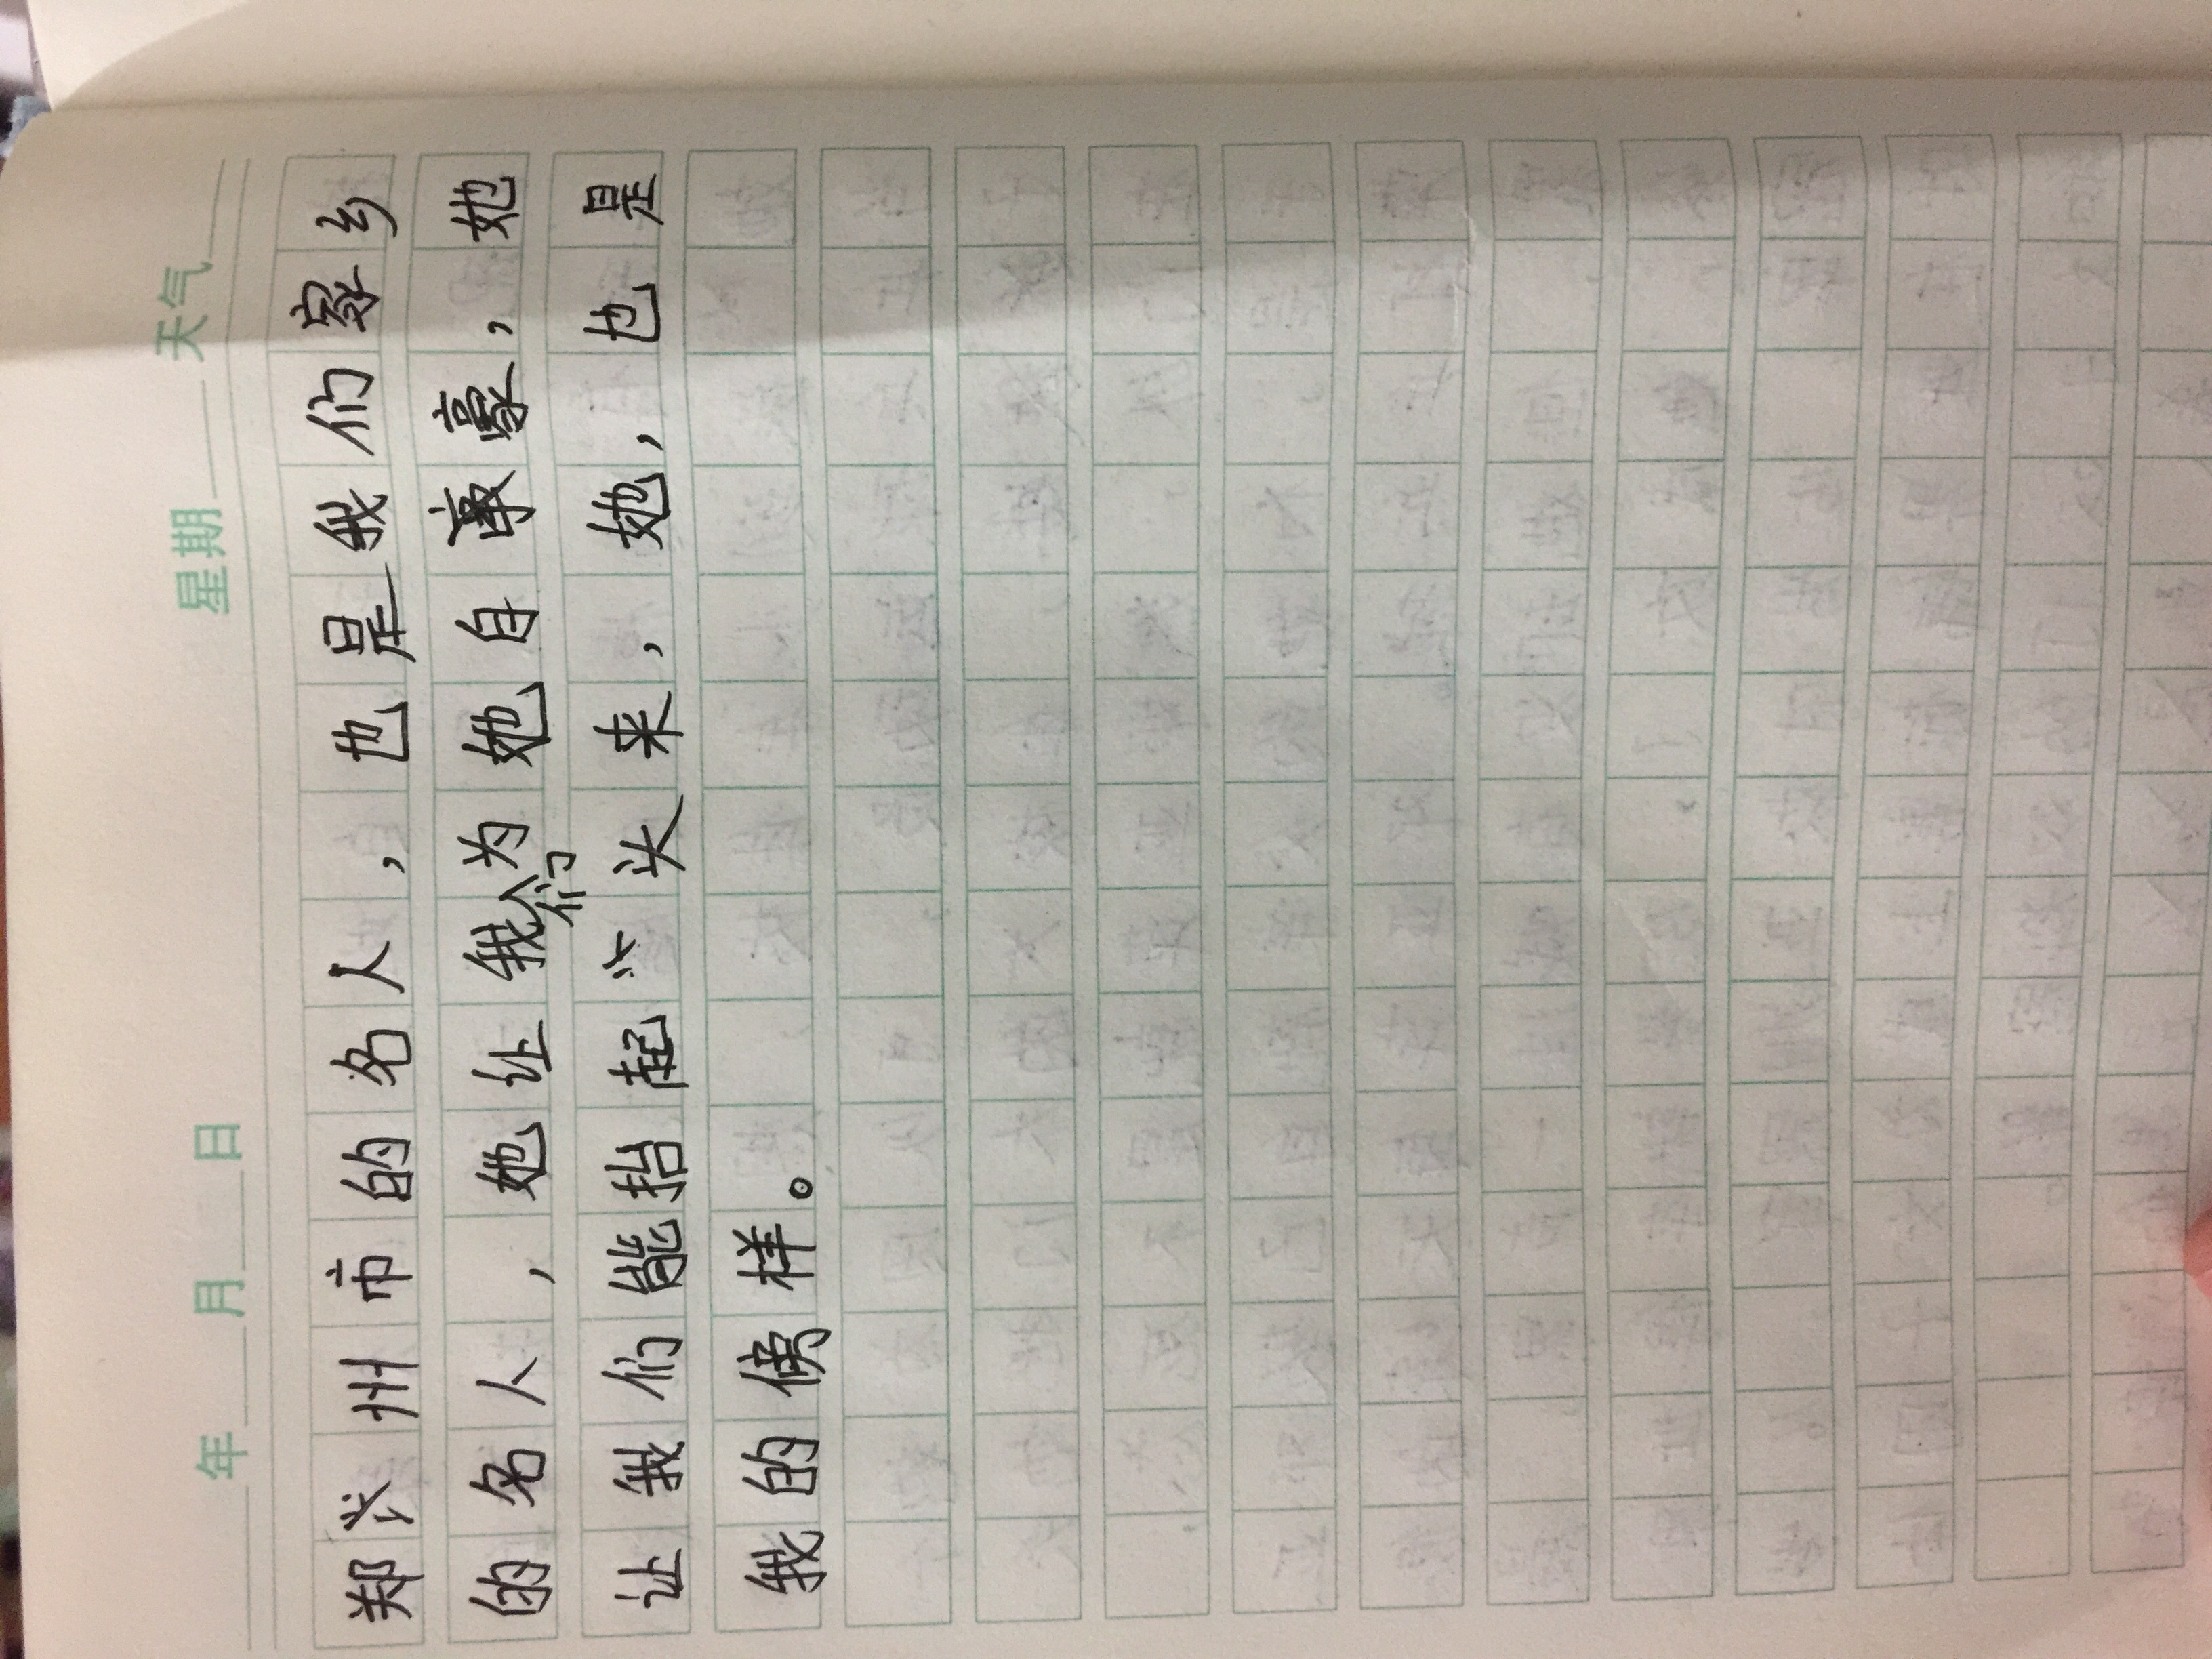 年 月 日 星期 天气
郑州市的名人，也是我们家乡
的名人，她让我们为她自豪，她
让我们能抬起头来，她，也是
我的傍样。